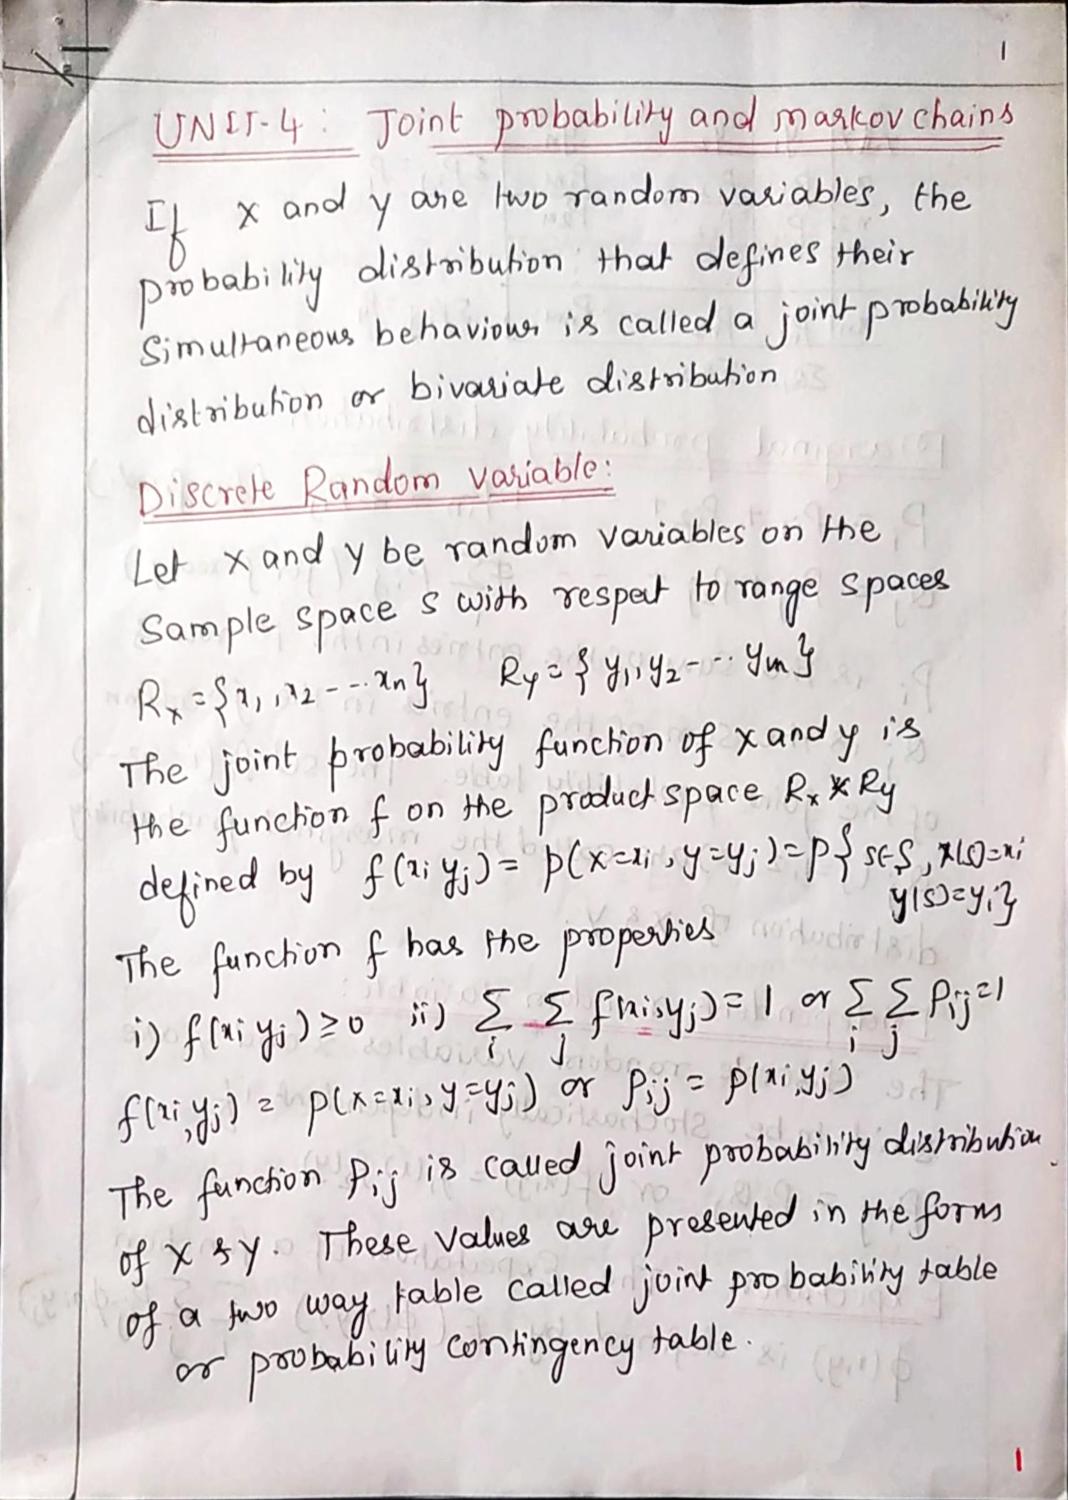 1
UNIT-4: Joint probability and markov chains
If x and y are two random variables, the
probability distribution that defines their
Simultaneous behaviour is called a joint probability
distribution or bivariate distribution
Discrete Random variable:
Let x and y be random variables on the
Sample space s with respect to range spaces
Rx = {x1, x2 --.. xn} Ry = { y1, y2 --.. ym}
The joint probability function of x and y is
the function f on the product space Rx × Ry
defined by f(xi yj) = p(x=xi, y=yj) = p{ s∈S, x(s)=xi
y(s)=yi}
The function f has the properties
i) f(xi yj) ≥ 0 ii) Σi Σj f(xi, yj) = 1 or Σi Σj Pij = 1
f(xi, yj) = p(x=xi, y=yj) or Pij = p(xi, yj)
The function Pij is called joint probability distribution
of x & y. These values are presented in the form
of a two way table called joint probability table
or probability contingency table.
1